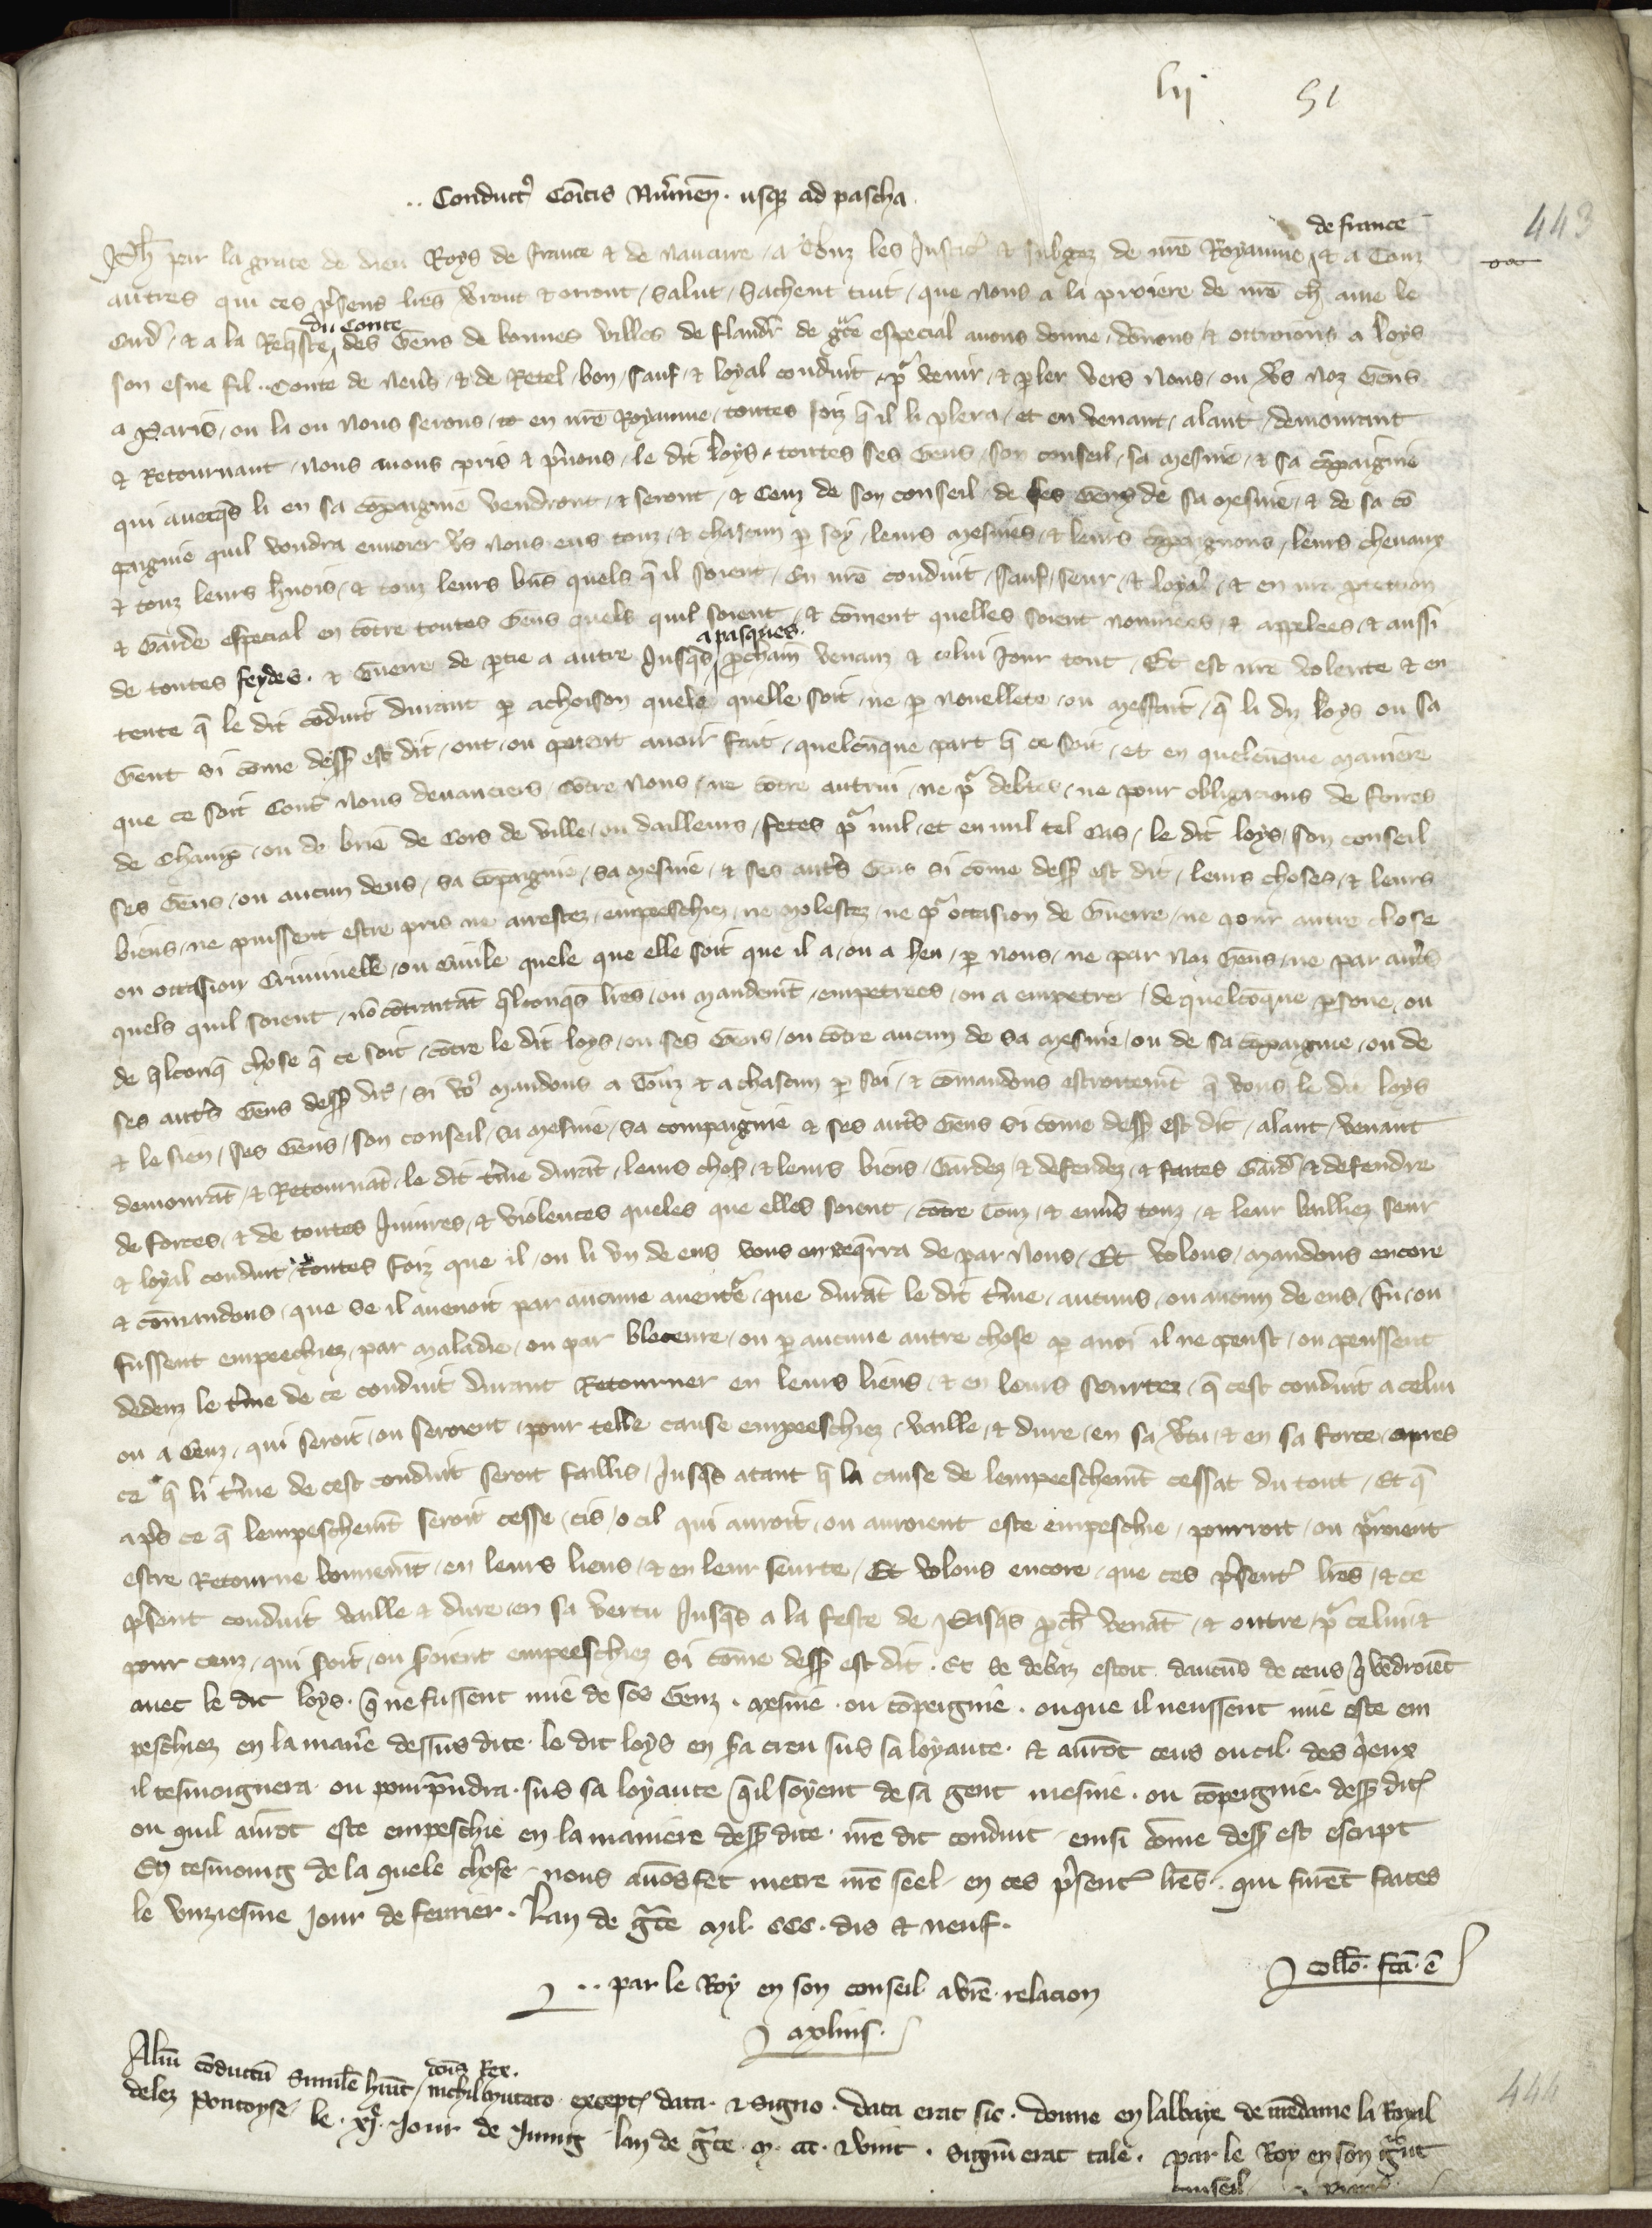 lij 51
.. Conduct9 Cōitis Niu̾nen̄. usq3 ad pascha.
443
de france
Ph̄ par la grace de dieu Roys de france & de nauarre, a Touz les Justic̾ & subgez de nr̄e Royaume, & a Touz
autres qui ces p̾sens lr̄es v̾ront & orront, Salut, Sachent tuit, que nous a la priiere de nr̄e ch̄ ame le
du Conte
Card̾, & a la Req̄ste, des Gens de bonnes villes de flandr̾ de gr̄ce especial auons donne, dōnons, & ottroions a loys
son esne fil .. Conte de neu̾s, & de Retel, bon, sauf, & loyal conduit, p̾ venir, & p̱ler vers nous, ou v̾s noz Gens
a Paris, ou la ou nous serons, & en nr̄e Royaume, toutes foiz q̄ il li plera, et en venant, alant, demourant
& Retournant, nous auons pris & p̾nons, le dit loys, toutes ses Gens, son conseil, sa mesnie, & sa cōpaignie
qui auecq̄s li en sa cōpaignie vendront, & seront, & Ceuz de son conseil, de ses Gens, de sa mesnie, & de sa cō
paignie quil voudra enuoier v̾s nous eus touz, & chascun p̱ soy, leurs mesnies, & leurs cōpaignons, leurs cheuaux
& touz leurs h̾nois, & touz leurs biens quels q̄ il soient, En nr̄e conduit, sauf, seur, & loyal, & en nr̄e protection
& Garde especial en cōtre toutes Gens quels quil soient, & cōment quelles soient nommees, & appelees, & aussi
a pasques.
de toutes feydes. & Guerre de p̱tie a autre Jusq̄s, p̱chain venanz & celui Jour tout, Et est nr̄e volente & en
tente q̄ le dit cōduit durant p̱ achoison quele quelle soit, ne p̱ nouellete, ou meffait, q̄ li diz loys ou sa
Gent si cōme dess̾ est dit, ont, ou porent auoir fait, quelcunque part q̄ ce soit, et en quelcunque maniere
que ce soit Contr̾ nous deuanciers, cōtre nous, ne cōtre autrui, ne p̾ debtes, ne pour obligacions de foires
de Champ̄, ou de brie de Cors de ville, ou dailleurs, fetes p̾ nul, et en nul tel cas, le dit loys, son conseil
ses Gens, ou aucun deus, sa cōpaignie, sa mesnie, & ses aut̾s Gens si cōme dess̾ est dit, leurs choses, & leurs
biens, ne puissent estre pris ne arrestez, empeeschiez, ne molestez, ne p̾ occasion de Guerre, ne pour autre chose
ou occasion Criminelle, ou Ciuile quele que elle soit que il a, ou a heu, p̱ nous, ne par noz Gens, ne par aut̾s
quels quil soient, nō contraitāt q̄lconq̄s lr̄es, ou mandem̄t, empetrees, ou a empetrer, de quelconque p̱sone, ou
de q̄lconq̄ chose q̄ ce soit, cōtre le dit loys, ou ses Gens, ou cōtre aucun de sa mesnie, ou de sa cōpaignie, ou de
ses aut̾s Gens dess̾ dit̾, Si vo9 mandons a Touz & a chascun p̱ soi, & cōmandons estroitem̄t q̄ vous le dit loys
& le sien, ses Gens, son conseil, sa mesnie, sa compaignie & ses aut̾s Gens si cōme dess̾ est dit, alant, venant
demourāt, & Retournāt, le dit t̾me durāt, leurs chos̾, & leurs biens, Gardez, & defendez, & faites Gard̾, & defendre
de forces, & de toutes Iniures, & violences queles que elles soient, cōtre Touz, & enu̾s touz, & leur bailliez seur
& loyal conduit, toutes foiz que il, ou li vn de eus vous en req̾rra de par nous, Et volons, mandons encore
& cōmandons, que se il auenoit par aucune auenture, que durāt le dit t̾me, aucuns, ou aucun de eus, fu, ou
fussent empeechiez, par maladie, ou par bleceure, ou p̱ aucune autre chose p̱ quoi il ne peust, ou peussent
dedenz le t̾me de ce conduit durant Retourner en leurs liens, & en leurs seurtez, q̄ cest conduit a celui
ou a Ceuz, qui seroit, ou seroient, pour telle cause empeeschiez, vaille, & dure, en sa v̾tu, & en sa force, apres
ce q̄ li t̾me de cest conduit seroit faillis, Jusq̄s atant q̄ la cause de lempeeschem̄t cessat du tout, Et q̄
ap̾s ce q̄ lempeschem̄t seroit cesse, cis, o cil qui auroit, ou auroient este empeschie, pourroit, ou p̾roient
estre Retourne bonnem̄t, en leurs liens, & en leur seurte, Et volons encore, que ces p̾sent̾ lr̄es, & ce
p̾sent conduit vaille & dure, en sa vertu Jusq̄s a la feste de Pasq̄s p̱ch̄ venāt, & outre, p̾ celui, &
pour ceuz, qui s̾oit, ou s̾oient empeeschiez si cōme dess̾ est dit. Et se debaz estoit daucūs de ceus q̾ vēdroiēt
auec le dit loys. q̄ ne fussent mie de ses Genz. mesnie. ou cōpeignie. ou que il neussent mie este em
peschiez en la man̾e dessus dite. le dit loys en s̾a creu sus sa loyaute. & aurōt ceus ou cil. des q̾eux
il tesmoignera. ou pourp̾ndra. sus sa loyaute q̄il soyent de sa gent mesnie. ou cōpeignie. dess̾ dit̾
ou quil aurōt este empeschie en la maniere dess̾ dite. nr̄e dit conduit, einsi cōme dess̾ est escript
En tesmoing de la quele chose, nous auōs fet metre nr̄e seel, en ces p̾sent̾ lr̄es. qui furēt faites
le vnziesme Jour de feurier. Lan de gr̄ce mil. ccc. dis & neuf.
Coll̄o. fc̄a. ē
.. par le Roy en son conseil. a vr̄e. relacion
dn̄s Rex.
Aliū cōductū Simil̄e hūit, nichil mutato. except̾ data. & Signo. data erat sic. donne en labbaie de madame la Royal
444
delez Pontoyse, le. xj̾. Jour de Juing lan de gr̄ce. m. ccc. & vint. Signū erat tale. par le Roy en son gr̄nt
conseil.